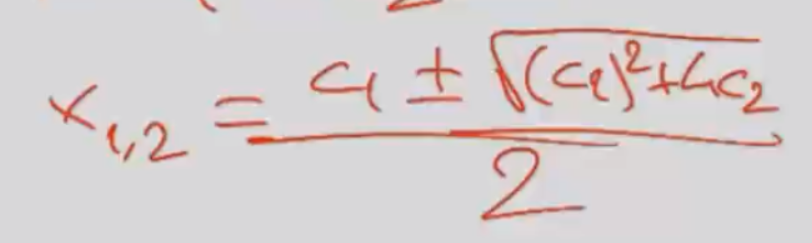 x₁,₂ = (c₁ ± √((c₁)² + 4c₂)) / 2